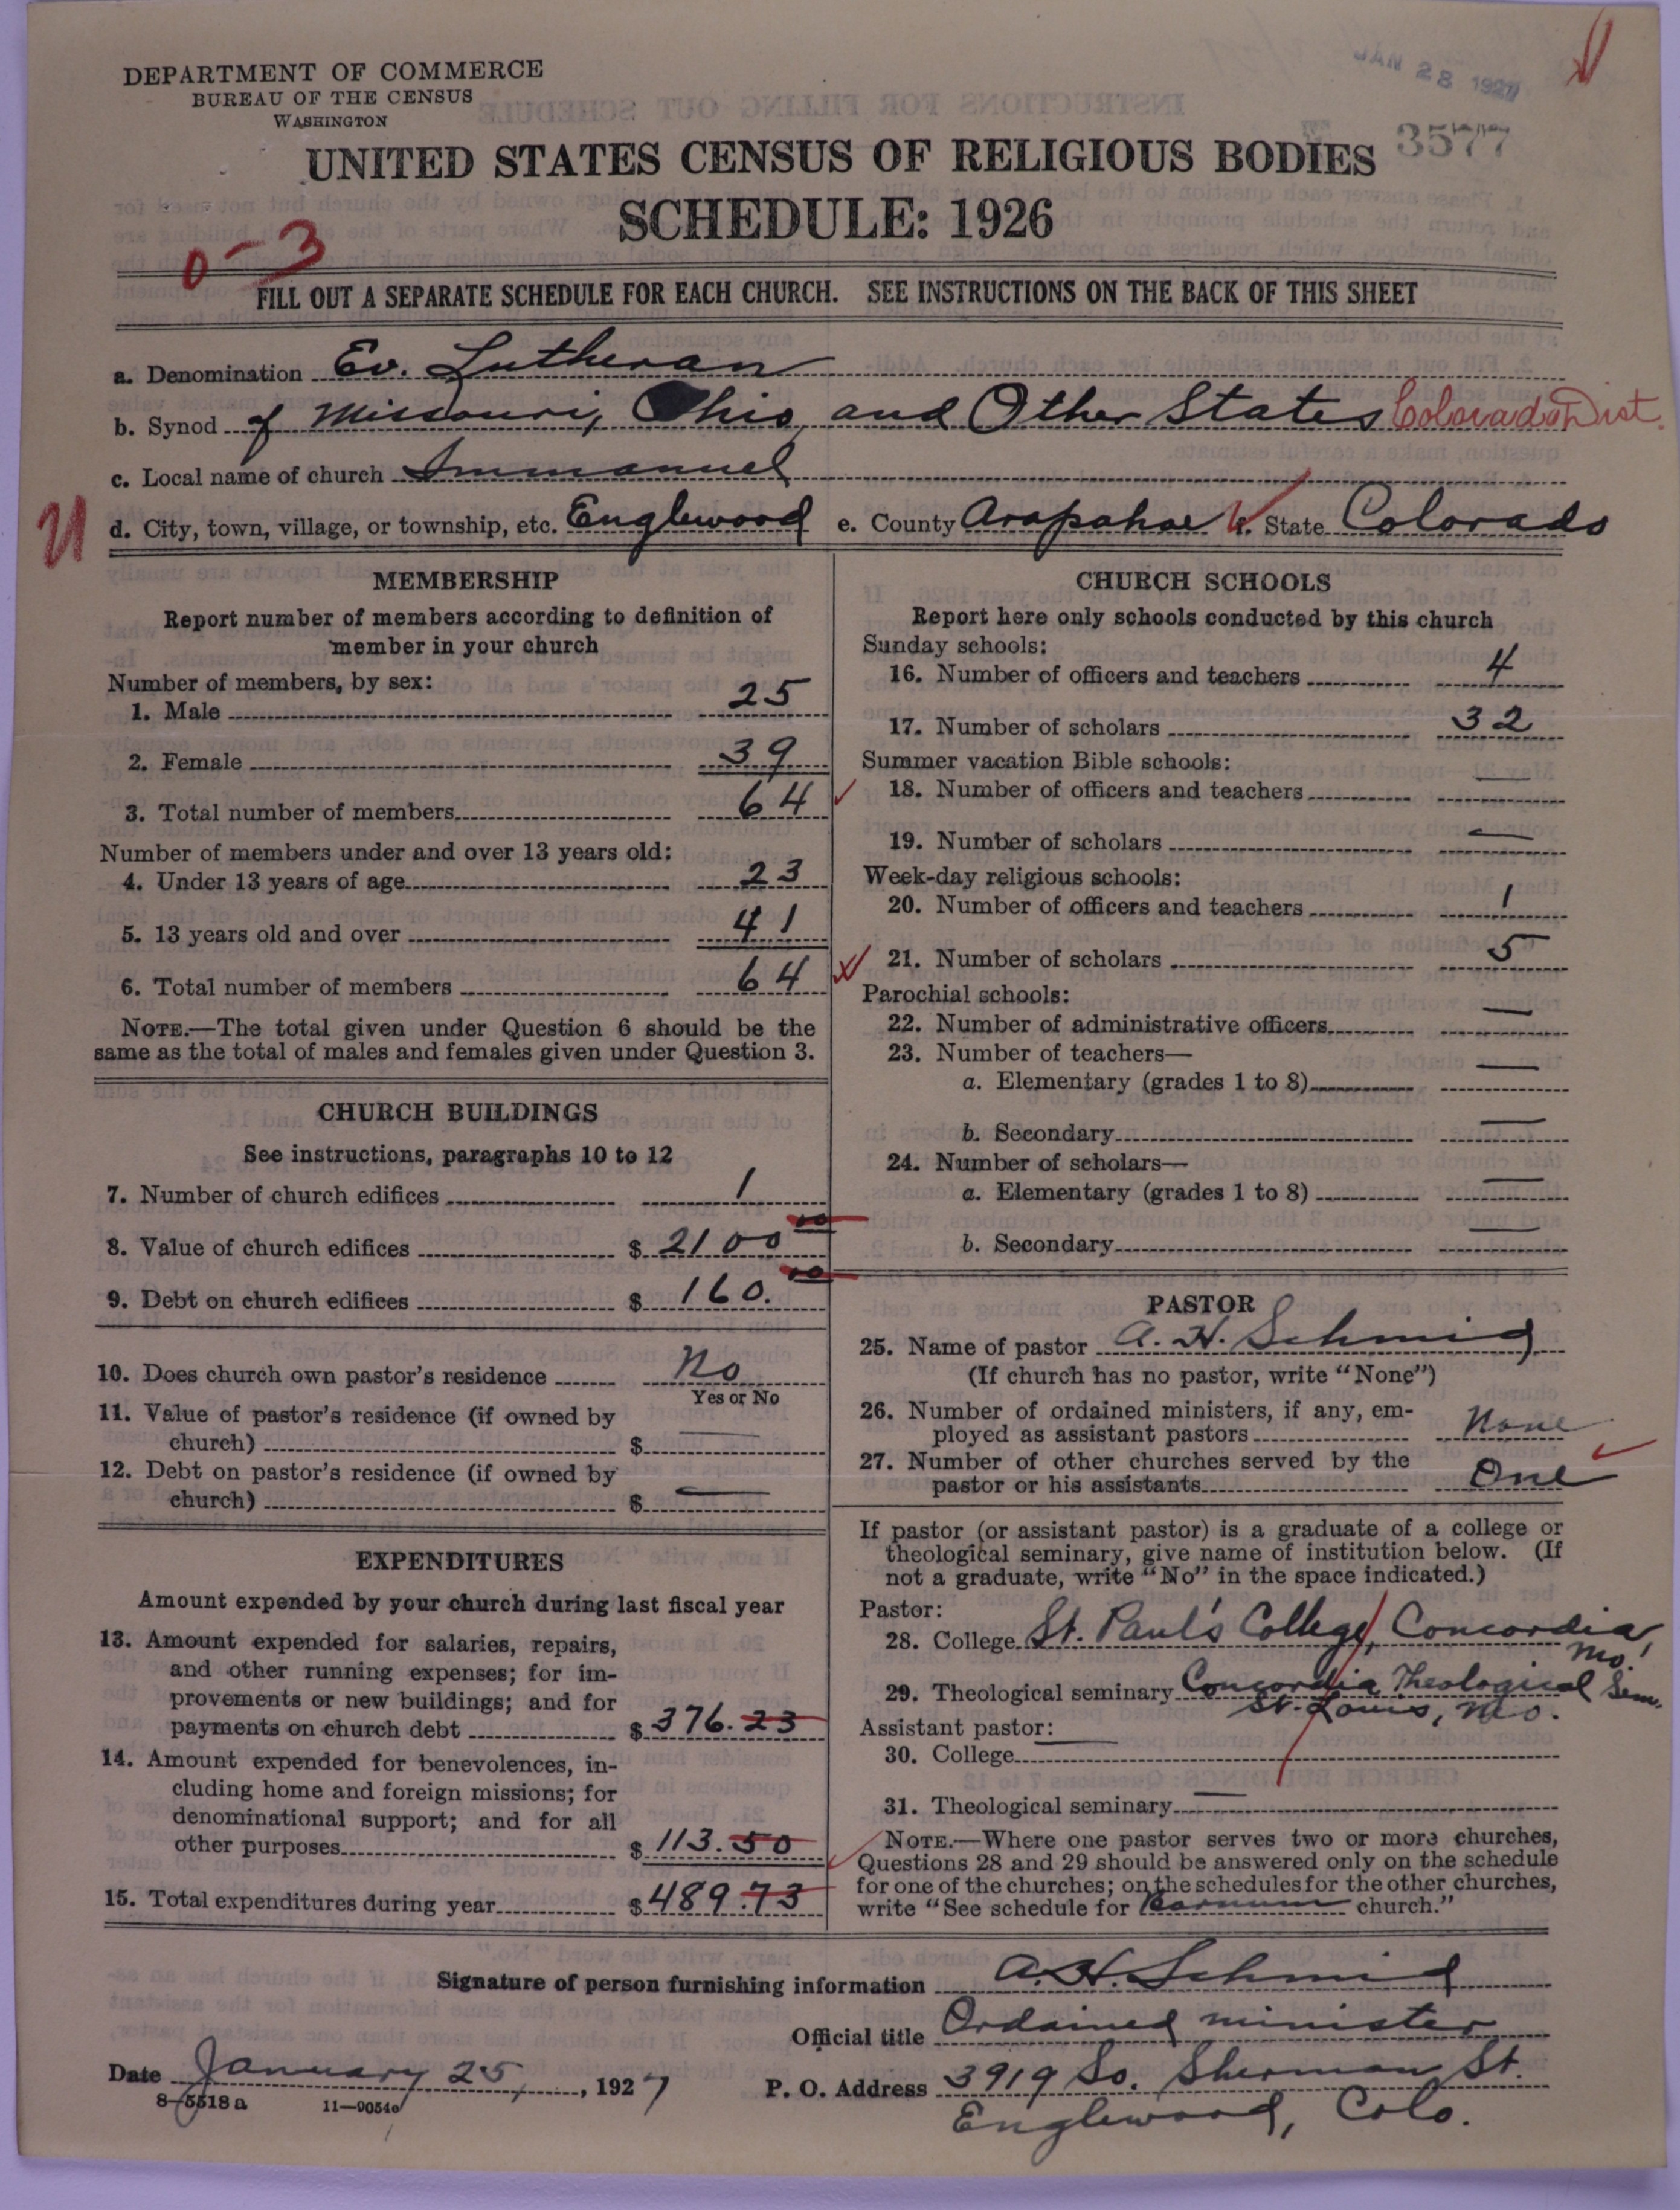 DEPARTMENT OF COMMERCE
BUREAU OF THE CENSUS
WASHINGTON
JAN 28 1927
3577
UNITED STATES CENSUS OF RELIGIOUS BODIES
SCHEDULE: 1926
0-3
FILL OUT A SEPARATE SCHEDULE FOR EACH CHURCH. SEE INSTRUCTIONS ON THE BACK OF THIS SHEET
a. Denomination Ev. Lutheran
b. Synod of Missouri, Ohio and Other States Colorado Dist.
c. Local name of church Immanuel
d. City, town, village, or township, etc. Englewood e. County Arapahoe f. State Colorado
MEMBERSHIP
Report number of members according to definition of
member in your church
Number of members, by sex:
1. Male 25
2. Female 39
3. Total number of members 64
Number of members under and over 13 years old:
4. Under 13 years of age 23
5. 13 years old and over 41
6. Total number of members 64
NOTE.—The total given under Question 6 should be the
same as the total of males and females given under Question 3.
CHURCH BUILDINGS
See instructions, paragraphs 10 to 12
7. Number of church edifices 1
8. Value of church edifices $ 2100 00
9. Debt on church edifices $ 160. 00
10. Does church own pastor's residence No
Yes or No
11. Value of pastor's residence (if owned by
church) $ —
12. Debt on pastor's residence (if owned by
church) $ —
EXPENDITURES
Amount expended by your church during last fiscal year
13. Amount expended for salaries, repairs,
and other running expenses; for im-
provements or new buildings; and for
payments on church debt $ 376.23
14. Amount expended for benevolences, in-
cluding home and foreign missions; for
denominational support; and for all
other purposes $ 113.50
15. Total expenditures during year $ 489.73
CHURCH SCHOOLS
Report here only schools conducted by this church
Sunday schools:
16. Number of officers and teachers 4
17. Number of scholars 32
Summer vacation Bible schools:
18. Number of officers and teachers —
19. Number of scholars —
Week-day religious schools:
20. Number of officers and teachers 1
21. Number of scholars 5
Parochial schools:
22. Number of administrative officers —
23. Number of teachers—
a. Elementary (grades 1 to 8) —
b. Secondary —
24. Number of scholars—
a. Elementary (grades 1 to 8) —
b. Secondary —
PASTOR
25. Name of pastor A. H. Schmid
(If church has no pastor, write "None")
26. Number of ordained ministers, if any, em-
ployed as assistant pastors None
27. Number of other churches served by the
pastor or his assistants One
If pastor (or assistant pastor) is a graduate of a college or
theological seminary, give name of institution below. (If
not a graduate, write "No" in the space indicated.)
Pastor:
28. College St. Paul's College, Concordia, Mo.
29. Theological seminary Concordia Theological Sem.
St. Louis, Mo.
Assistant pastor:
30. College —
31. Theological seminary —
NOTE.—Where one pastor serves two or more churches,
Questions 28 and 29 should be answered only on the schedule
for one of the churches; on the schedules for the other churches,
write "See schedule for church."
Signature of person furnishing information A. H. Schmid
Official title Ordained minister
Date January 25, 1927
P. O. Address 3919 So. Sherman St.
Englewood, Colo.
8-5518 a 11-9054